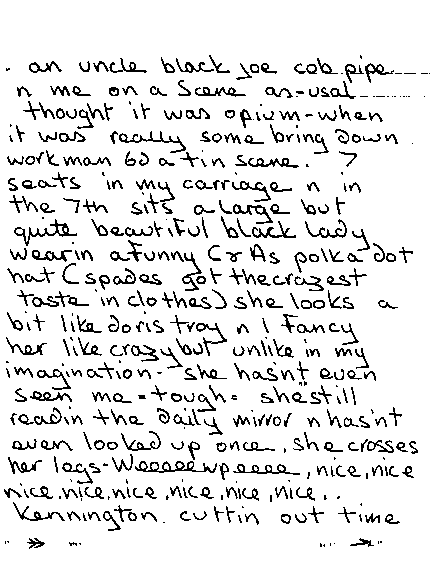 . an uncle black joe cob pipe
n me on a scene as-usal
thought it was opium-when
it was really some bring down
workman 6d a tin scene. 7
seats in my carriage n in
the 7th sits a large but
quite beautiful black lady
wearin a funny C & As polka dot
hat (spades got the crazest
taste in clothes) she looks a
bit like doris troy n I fancy
her like crazy but unlike in my
imagination - she hasnt even
seen me - tough - she still
readin the daily mirror n hasn't
even looked up once, she crosses
her legs - Weeeeewpeeee, nice, nice
nice, nice, nice, nice, nice, nice..
Kennington. cuttin out time